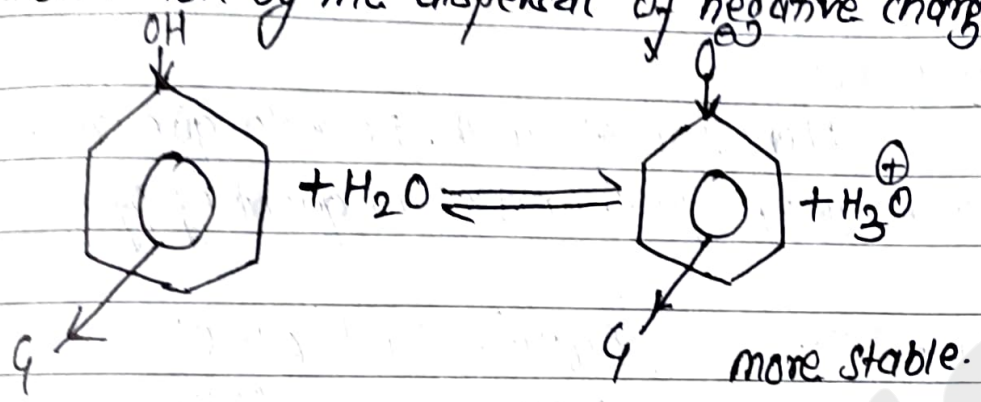 by the dispersal of negative charg
OH
O⊖
+ H₂O ⇌ + H₃O⊕
G
G more stable.